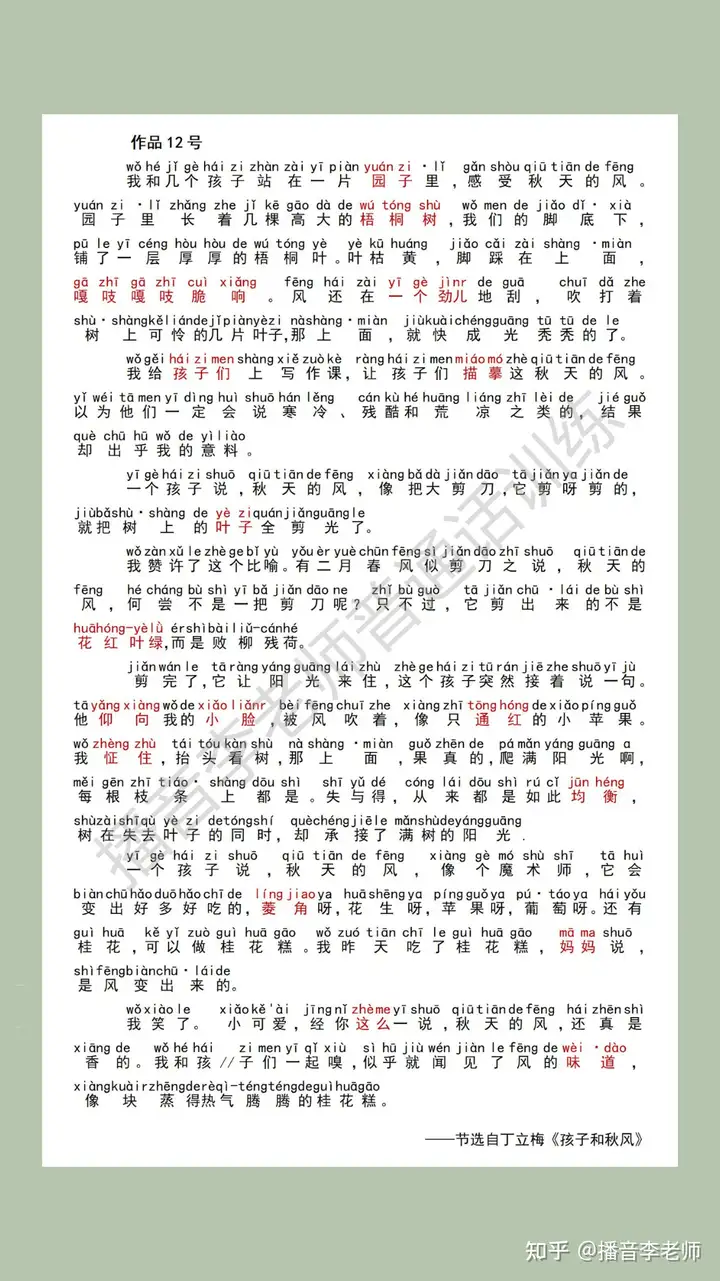 作品12号
wǒ hé jǐ gè hái zi zhàn zài yī piàn yuán zi·lǐ gǎn shòu qiū tiān de fēng
我和几个孩子站在一片园子里,感受秋天的风。
yuán zi·lǐ zhǎng zhe jǐ kē gāo dà de wú tóng shù wǒ men de jiǎo dǐ·xià
园子里长着几棵高大的梧桐树,我们的脚底下,
pū le yī céng hòu hòu de wú tóng yè yè kū huáng jiǎo cǎi zài shàng·miàn
铺了一层厚厚的梧桐叶。叶枯黄,脚踩在上面,
gā zhī gā zhī cuì xiǎng fēng hái zài yī gè jìnr de guā chuī dǎ zhe
嘎吱嘎吱脆响。风还在一个劲儿地刮,吹打着
shù·shàngkěliándejǐpiànyèzi nàshàng·miàn jiùkuàichéngguāng tū tū de le
树上可怜的几片叶子,那上面,就快成光秃秃的了。
wǒgěi hái zi men shàng xiě zuò kè ràng hái zi men miáo mó zhè qiū tiān de fēng
我给孩子们上写作课,让孩子们描摹这秋天的风。
yǐ wéi tā men yī dìng huì shuō hán lěng cán kù hé huāng liáng zhī lèi de jié guǒ
以为他们一定会说寒冷、残酷和荒凉之类的,结果
què chū hū wǒ de yìliào
却出乎我的意料。
yī gè hái zi shuō qiū tiān de fēng xiàng bǎ dà jiǎn dāo tā jiǎn ya jiǎn de
一个孩子说,秋天的风,像把大剪刀,它剪呀剪的,
jiùbǎshù·shàng de yè zi quánjiǎnguāngle
就把树上的叶子全剪光了。
wǒ zàn xǔ le zhè ge bǐ yù yǒu èr yuè chūn fēng sì jiǎn dāo zhī shuō qiū tiān de
我赞许了这个比喻。有二月春风似剪刀之说,秋天的
fēng hé cháng bù shì yī bǎ jiǎn dāo ne zhǐ bù guò tā jiǎn chū·lái de bù shì
风,何尝不是一把剪刀呢?只不过,它剪出来的不是
huāhóng-yèlǜ érshìbàiliǔ-cánhé
花红叶绿,而是败柳残荷。
jiǎn wán le tā ràng yáng guāng lái zhù zhè ge hái zi tū rán jiē zhe shuō yī jù
剪完了,它让阳光来住,这个孩子突然接着说一句。
tā yǎng xiàng wǒ de xiǎo liǎnr bèi fēng chuī zhe xiàng zhī tōng hóng de xiǎo píng guǒ
他仰向我的小脸,被风吹着,像只通红的小苹果。
wǒ zhèng zhù tái tóu kàn shù nà shàng·miàn guǒ zhēn de pá mǎn yáng guāng a
我怔住,抬头看树,那上面,果真的,爬满阳光啊,
měi gēn zhī tiáo·shàng dōu shì shī yǔ dé cóng lái dōu shì rú cǐ jūn héng
每根枝条上都是。失与得,从来都是如此均衡,
shùzàishīqù yè zi detóngshí quèchéngjiēle mǎnshùdeyángguāng
树在失去叶子的同时,却承接了满树的阳光.
yī gè hái zi shuō qiū tiān de fēng xiàng gè mó shù shī tā huì
一个孩子说,秋天的风,像个魔术师,它会
biàn chū hǎo duō hǎo chī de líng jiao ya huā shēng ya píng guǒ ya pú·táo ya hái yǒu
变出好多好吃的,菱角呀,花生呀,苹果呀,葡萄呀。还有
guì huā kě yǐ zuò guì huā gāo wǒ zuó tiān chī le guì huā gāo mā ma shuō
桂花,可以做桂花糕。我昨天吃了桂花糕,妈妈说,
shìfēngbiànchū·láide
是风变出来的。
wǒ xiào le xiǎo kě'ài jīng nǐ zhème yī shuō qiū tiān de fēng hái zhēn shì
我笑了。小可爱,经你这么一说,秋天的风,还真是
xiāng de wǒ hé hái zi men yī qǐ xiù sì hū jiù wén jiàn le fēng de wèi·dào
香的。我和孩//子们一起嗅,似乎就闻见了风的味道,
xiàngkuàirzhēngderèqì-téngténgdeguìhuāgāo
像块蒸得热气腾腾的桂花糕。
——节选自丁立梅《孩子和秋风》
播音李老师普通话训练
知乎 @播音李老师